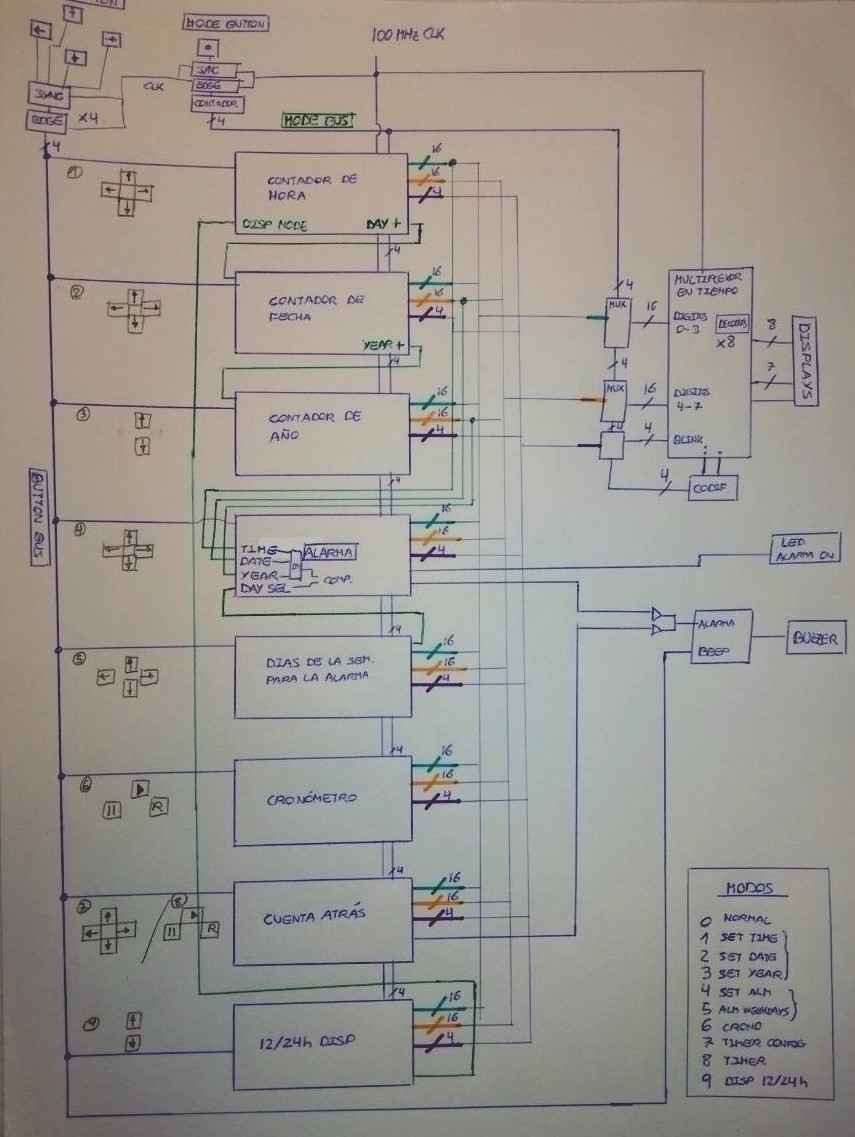 MODE BUTTON
100 MHz CLK
SYNC
EDGE
x4
CLK
SYNC
EDGE
CONTADOR
4
4
MODE BUS
BUTTON BUS
1
CONTADOR DE
HORA
DISP MODE
DAY +
16
16
4
4
2
CONTADOR DE
FECHA
YEAR +
16
16
4
4
3
CONTADOR DE
AÑO
16
16
4
4
4
TIME
DATE
YEAR
DAY SEL
ALARMA
COMP.
16
16
4
4
5
DIAS DE LA SEM.
PARA LA ALARMA
16
16
4
4
6
II
R
CRONÓMETRO
16
16
4
4
7
8
II
R
CUENTA ATRÁS
16
16
4
4
9
12/24h DISP
16
16
4
4
MUX
16
4
MUX
16
4
4
4
MULTIPLEXOR
EN TIEMPO
DIGITOS
0-3
x8
DIGITOS
4-7
BLINK
8
7
DISPLAYS
CODIF.
LED
ALARMA ON
ALARMA
BEEP
BUZZER
MODOS
0 NORMAL
1 SET TIME
2 SET DATE
3 SET YEAR
4 SET ALM
5 ALM WEEKDAYS
6 CRONO
7 TIMER CONFIG
8 TIMER
9 DISP 12/24h